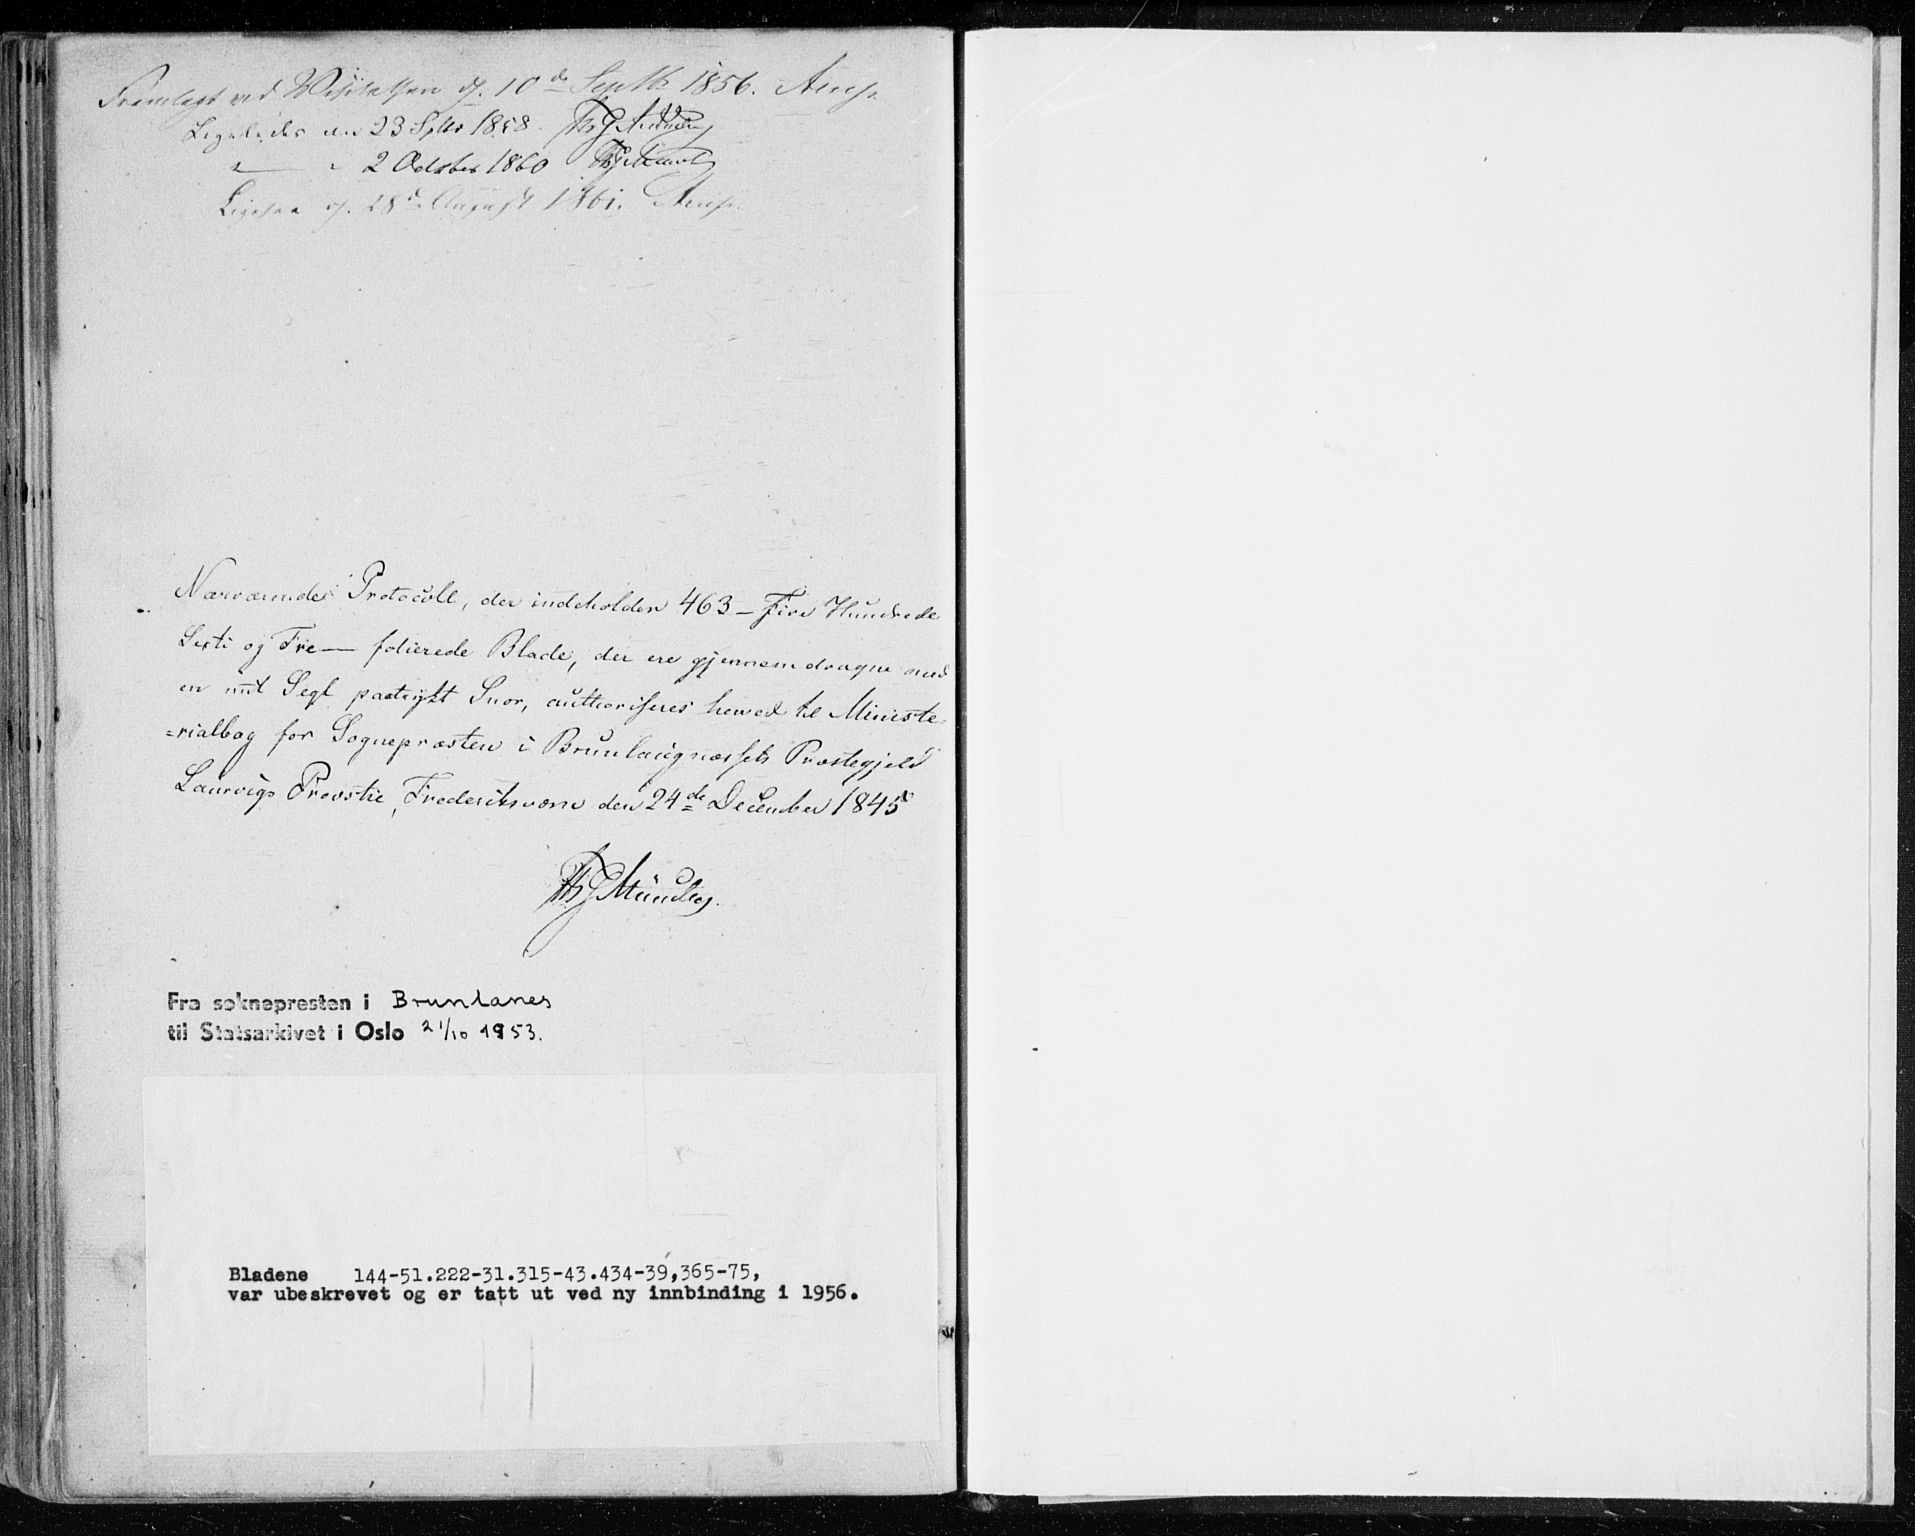 Fremlagt ved Visitatsen d. 10de Septb. 1856. Arup.
Ligeledes den 23 Septbr 1858. ThG Münster
" — " 2 October 1860 ThGMünster
Ligesaa d. 28de August 1861. Arup.
Nærværende Protocoll, der indeholder 463 – Fire Hundrede
Sexti og Tre — folierede Blade, der ere gjennemdragne med
en mit Segl paatrykt Snor, authoriseres herved til Ministe-
=rialbog for Sognepræsten i Brunlaugnæssets Præstegjeld
Laurvigs Provstie, Frederiksværn den 24de December 1845
ThGMünster.
Fra soknepresten i Brunlanes
til Statsarkivet i Oslo 21/10 1953.
Bladene 144-51.222-31.315-43.434-39,365-75,
var ubeskrevet og er tatt ut ved ny innbinding i 1956.